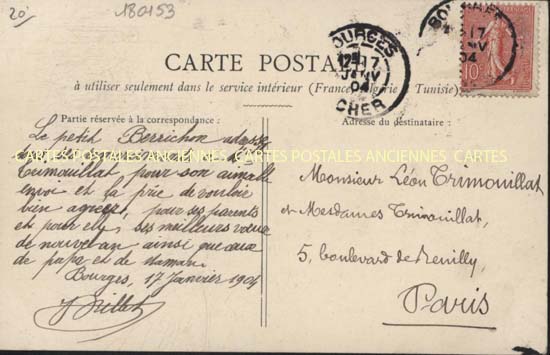 20
180153
CARTE POSTALE
à utiliser seulement dans le service intérieur (France, Algérie, Tunisie).
BOURGES
17
JANV
04
CHER
BOURGES
17
04
10
Partie réservée à la correspondance :
Adresse du destinataire :
Le petit Berrichon adresse
CARTES POSTALES ANCIENNES CARTES POSTALES ANCIENNES CARTES
Trimouillat pour son aimable
envoi et le prie de vouloir
bien agréer, pour ses parents
et pour elle, ses meilleurs vœux
de nouvel an ainsi que ceux
de papa et de maman.
Bourges, 17 Janvier 1904
Monsieur Léon Trimouillat
et Mesdames Trimouillat,
5, boulevard de Reuilly,
Paris